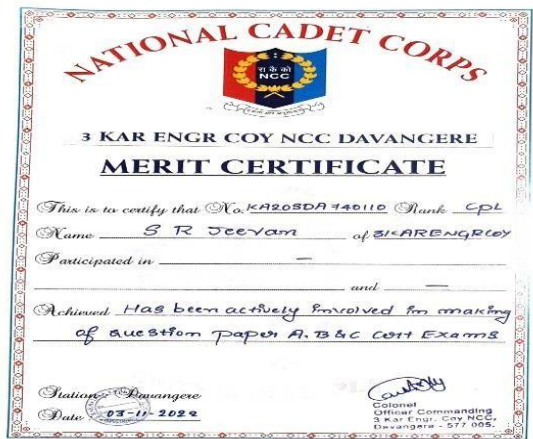 NATIONAL CADET CORPS
रा के को
NCC
3 KAR ENGR COY NCC DAVANGERE
MERIT CERTIFICATE
This is to certify that No. KA20SDA440110 Rank CPL
Name S R Jeevan of 3KARENGRCOY
Participated in —
and —
Achieved Has been actively involved in making
of question paper A, B & C cert Exams
Station Davangere
Date 03-11-2022
Colonel
Officer Commanding
3 Kar Engr. Coy NCC,
Davangere - 577 005.